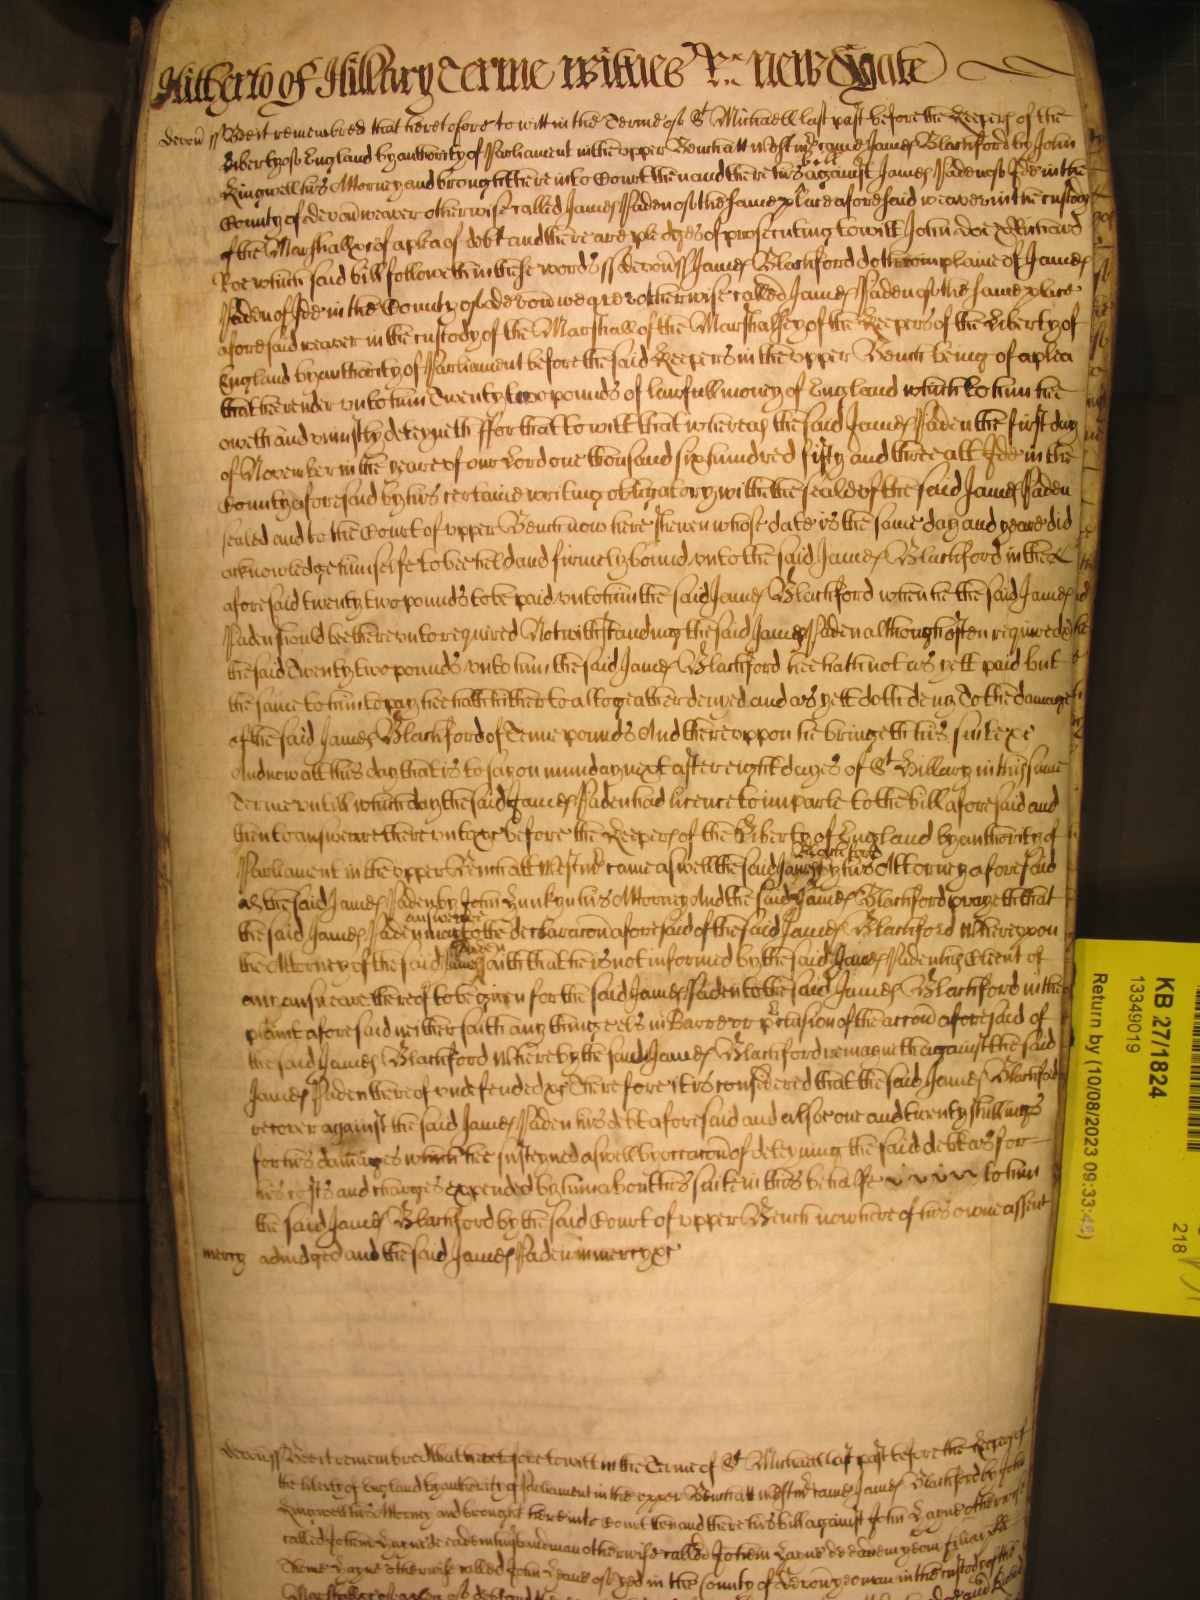 Hitherto of Hillary Terme witnes &c New Dygate
devon ss Bee it remembred that heretofore to witt in the Terme of St Michaell last past before the Keepers of the
liberty of England by authority of Parliament in the upper Bench att Westmr came James Blachford by John
Ringwell his Attorney and brought here into Court then and there his bill against James Faden of Ide in the
County of devon weaver otherwise called James Faden of the same place aforesaid weaver in the custody
of the Marshall &c of a plea of debt and there are pledges of prosecuting to witt John doe & Richard
Roe which said bill followeth in these words ss devon ss James Blachford doth complaine of James
Faden of Ide in the County of devon weaver otherwise called James Faden of the same place
aforesaid weaver in the custody of the Marshall of the Marshalsey of the Keepers of the Liberty of
England by authority of Parliament before the said Keepers in the upper Bench being of a plea
that he render unto him Twenty two pounds of lawfull money of England which to him hee
oweth and uniustly deteyneth ffor that to witt that whereas the said James Faden the first day
of November in the yeare of our Lord one thousand six hundred fifty and three att Ide in the
County aforesaid by his certaine writing obligatory with the seale of the said James Faden
sealed and to the Court of upper Bench now here shewen whose date is the same day and yeare did
acknowledge himselfe to bee held and firmely bound unto the said James Blachford in the
aforesaid twenty two pounds to be paid unto him the said James Blachford when he the said James
Faden should bee thereunto required Notwithstanding the said James Faden although often required
the said Twenty two pounds unto him the said James Blachford hee hath not as yett paid but
the same to him to pay hee hath hitherto altogeather denyed and as yett doth deny To the damage
of the said James Blachford of Tenne pounds And thereuppon he bringeth his suite &c
And now att this day that is to say on munday next after eight dayes of St Hillary in this same
Terme untill which day the said James Faden had licence to imparle to the bill aforesaid and
then to answeare thereunto &c before the Keepers of the Liberty of England by authority of
Parliament in the upper Bench att Westmr came aswell the said James Blachford by his Attorney aforesaid
as the said James Faden by John his Attorney And the said James Blachford prayeth that
the said James Faden may answeare to the declaracon aforesaid of the said James Blachford Whereupon
the Attorney of the said James Faden saith that he is not informed by the said James Faden his Client of
any answeare thereof to be given for the said James Faden to the said James Blachford in the
plaint aforesaid neither saith any thing els in Barre or of the accon aforesaid of
the said James Blachford Whereby the said James Blachford remayneth against the said
James Faden thereof undefended &c Therefore it is considered that the said James Blachford
recover against the said James Faden his debt aforesaid and alsoe one and twenty shillings
for his damages which hee susteyned aswell by occacon of deteyning the said debt as for
his costs and charges expended by him about his suite in this behalfe to him
the said James Blachford by the said Court of upper Bench now here of his owne assent
mercy adiudged and the said James Faden in mercy &c
devon ss Bee it remembred that heretofore to witt in the Terme of St Michaell last past before the Keepers of
the liberty of England by authority of Parliament in the upper Bench att Westmr came James Blachford by John
Ringwell his Attorney and brought here into Court then and there his bill against John Layne otherwise
called Johem Layne de eadem husbandman otherwise called Johem Layne de eadem yeom filiu
Layne otherwise called John Leane of in the County of devon yeoman in the custody of the
Marshall &c of a plea of debt and
KB 27/1824
13349019
Return by (10/08/2023 09:33:48)
218